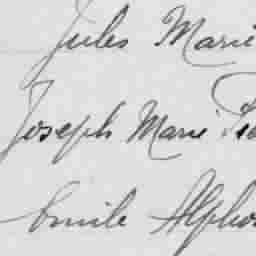 Jules Marie
Joseph Marie Pie
Emile Alphon